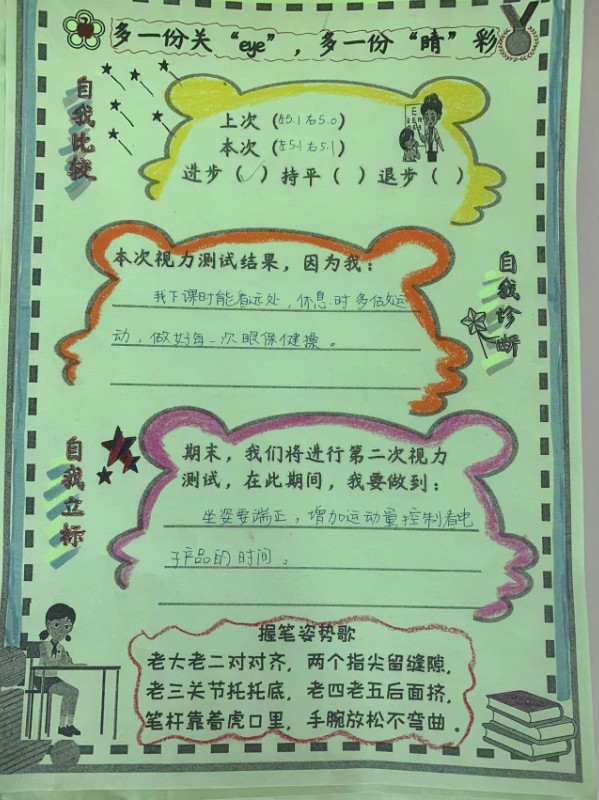 多一份关“eye”，多一份“睛”彩
自我比较
上次（左5.1右5.0）
本次（左5.1右5.1）
进步（✓）持平（ ）退步（ ）
本次视力测试结果，因为我：
我下课时能看远处，休息时多做运
动，做好每一次眼保健操。
自我诊断
自我立标
期末，我们将进行第二次视力
测试，在此期间，我要做到：
坐姿要端正，增加运动量控制看电
子产品的时间。
握笔姿势歌
老大老二对对齐，两个指尖留缝隙，
老三关节托托底，老四老五后面挤，
笔杆靠着虎口里，手腕放松不弯曲。